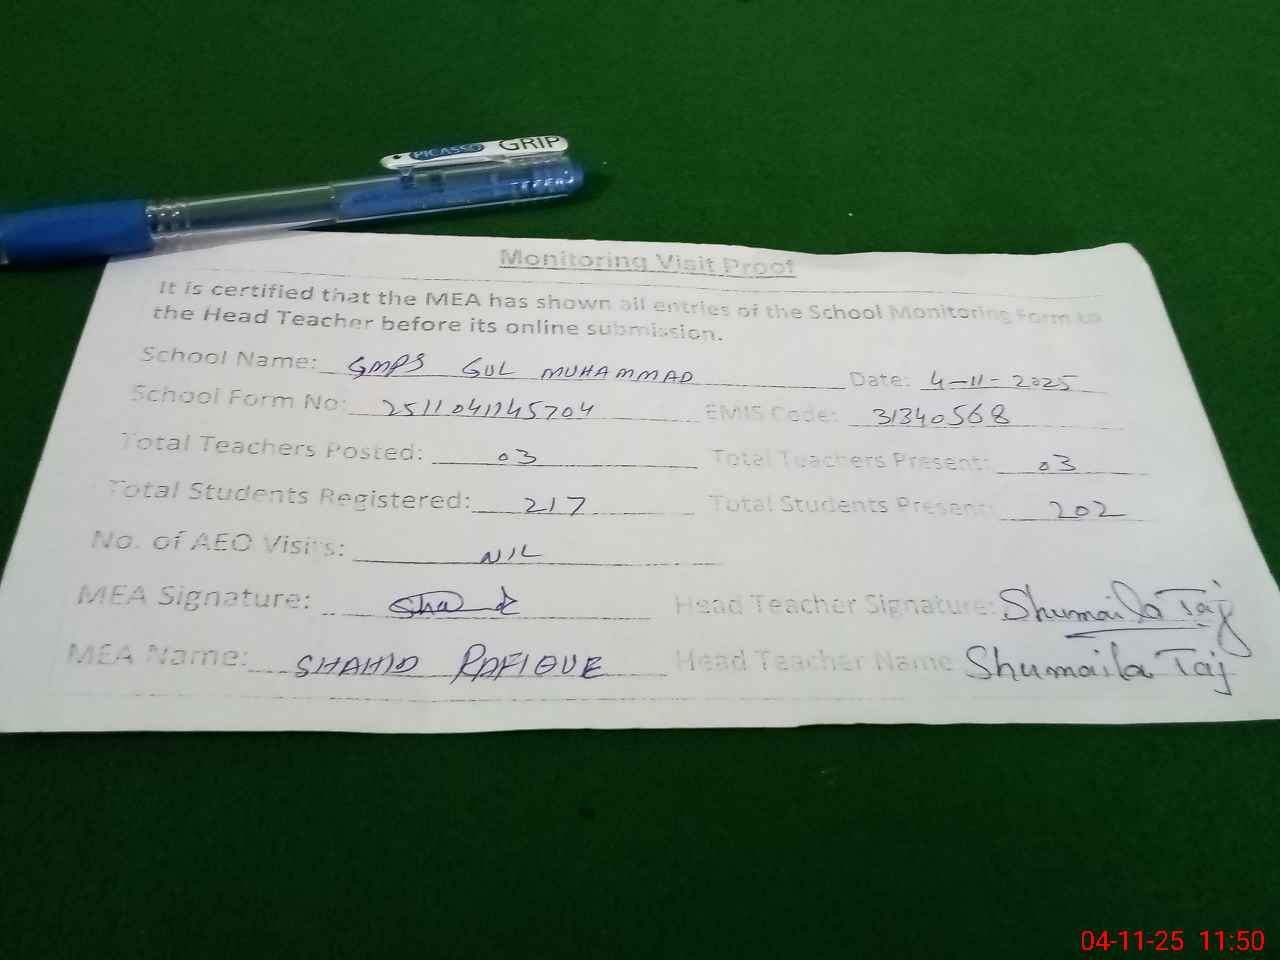 PICASSO GRIP
Monitoring Visit Proof
It is certified that the MEA has shown all entries of the School Monitoring Form to
the Head Teacher before its online submission.
School Name: GMPS GUL MUHAMMAD Date: 4-11-2025
School Form No: 2511041145704 EMIS Code: 31340568
Total Teachers Posted: 03 Total Teachers Present: 03
Total Students Registered: 217 Total Students Present: 202
No. of AEO Visits: NIL
MEA Signature: Head Teacher Signature: Shumaila Taj
MEA Name: SHAHID RAFIQUE Head Teacher Name Shumaila Taj
04-11-25 11:50